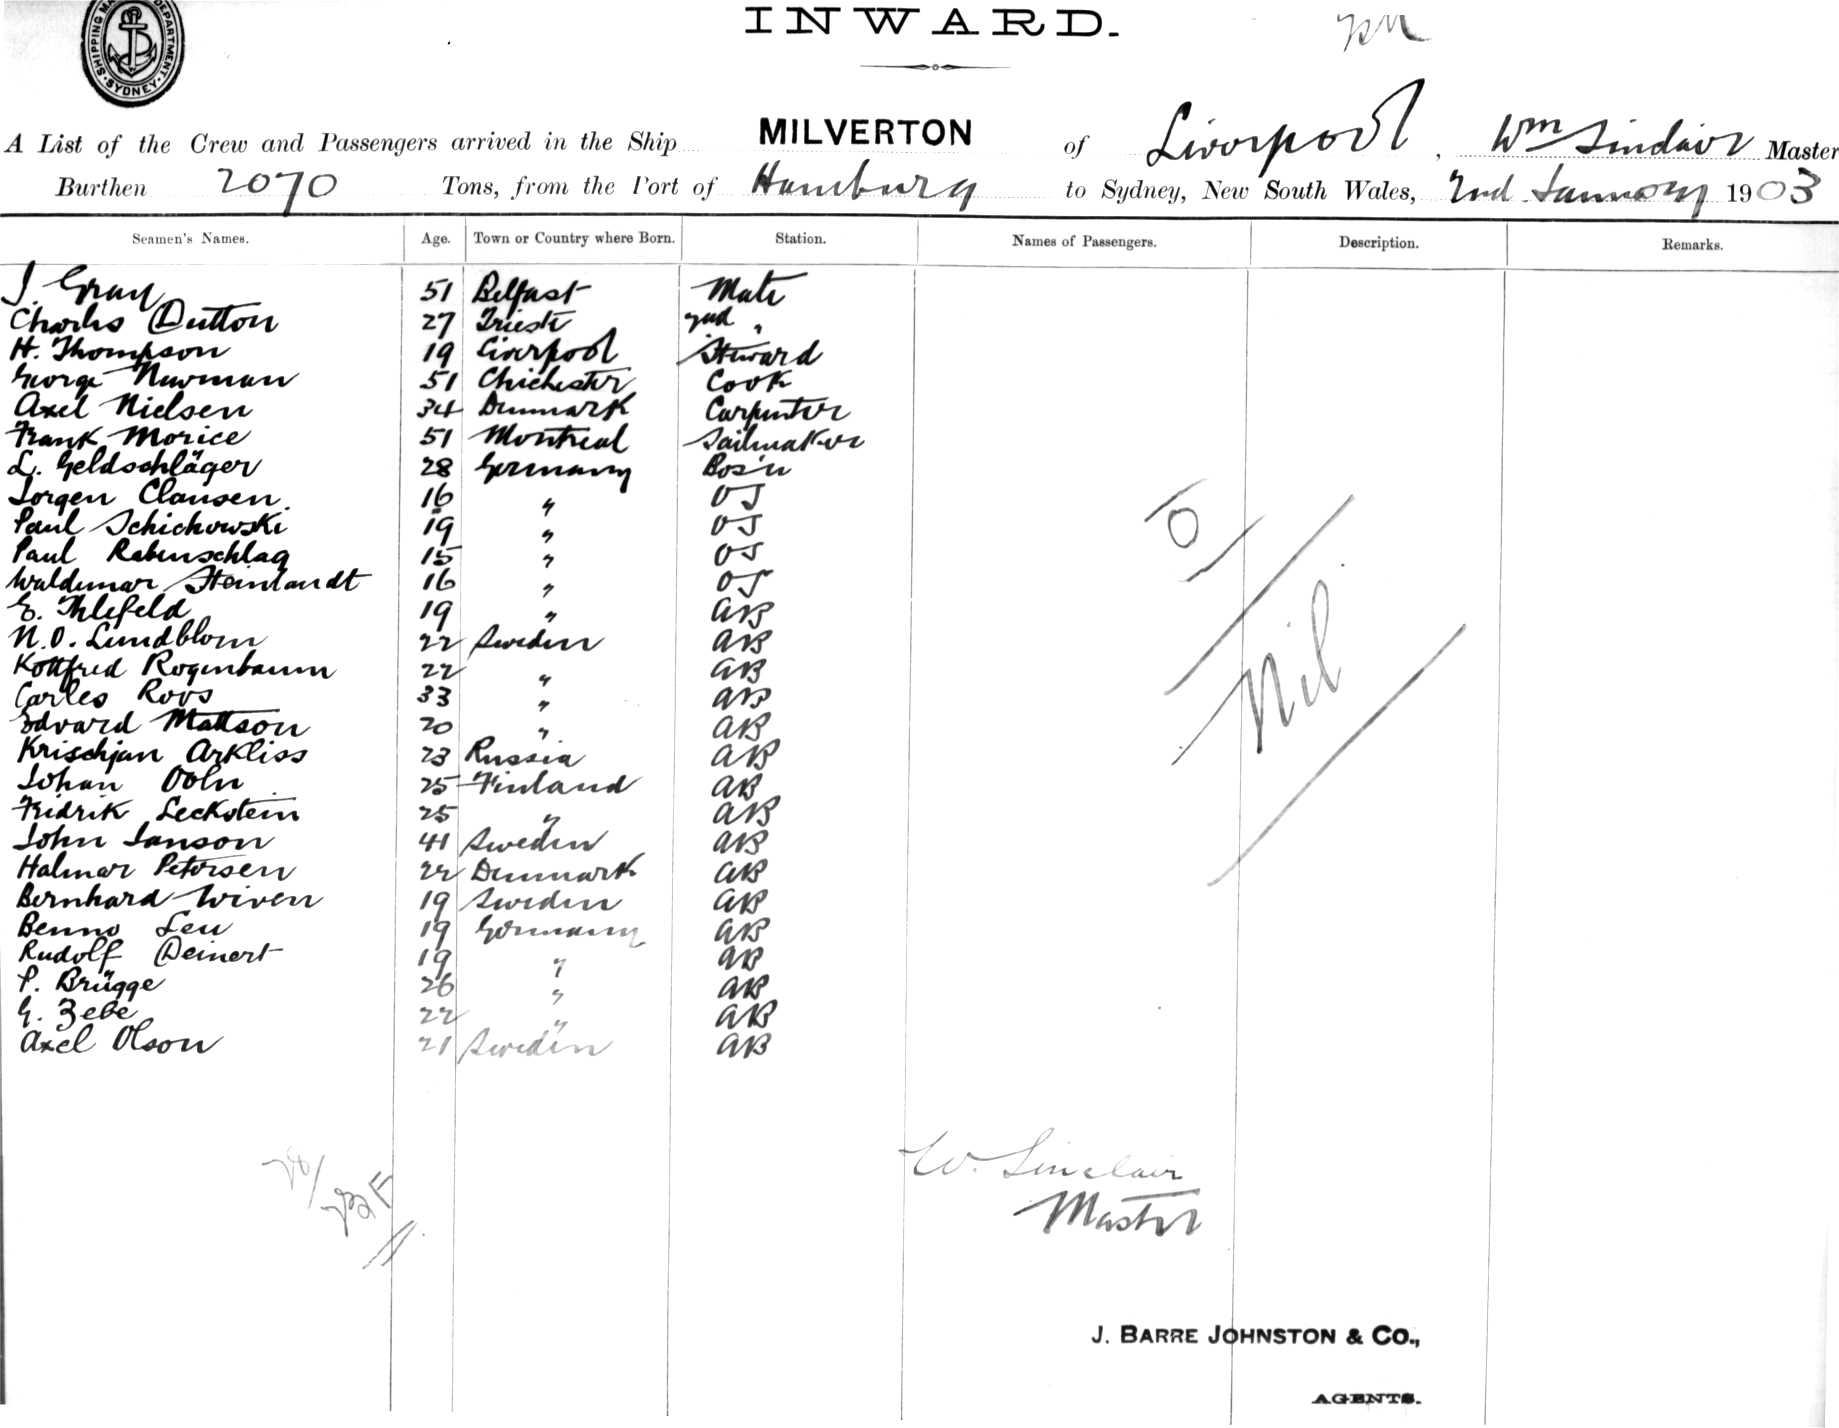 SHIPPING MA DEPARTMENT SYDNEY
INWARD.
A List of the Crew and Passengers arrived in the Ship MILVERTON of Liverpool, Wm Sinclair Master
Burthen 2070 Tons, from the Port of Hamburg to Sydney, New South Wales, 2nd January 1903
Seamen's Names. Age. Town or Country where Born. Station. Names of Passengers. Description. Remarks.
J. Gray 51 Belfast Mate
Charles Dutton 27 Trieste 2nd "
H. Thompson 19 Liverpool Steward
George Newman 51 Chichester Cook
Axel Nielsen 34 Denmark Carpenter
Frank Morice 51 Montreal Sailmaker
L. Geldschläger 28 Germany Bos'n
Jorgen Clausen 16 " OS
Paul Schichowski 19 " OS
Paul Rabenschlag 15 " OS
Waldemar Steinlandt 16 " OS
E. Ihlefeld 19 " AB
N.O. Lundblom 22 Sweden AB
Kottfred Rogenbaum 22 " AB
Carles Roos 33 " AB
Edvard Mattson 20 " AB
Krischjan Arkliss 23 Russia AB
Johan Ooln 25 Finland AB
Fredrik Leckstein 25 " AB
John Janson 41 Sweden AB
Halmar Petersen 22 Denmark AB
Bernhard Wiven 19 Sweden AB
Benno Leu 19 Germany AB
Rudolf Deinert 19 " AB
P. Brügge 26 " AB
G. Zebe 22 " AB
Axel Olson 21 Sweden AB
O
Nil
W. Sinclair
Master
J. BARRE JOHNSTON & CO.,
AGENTS.